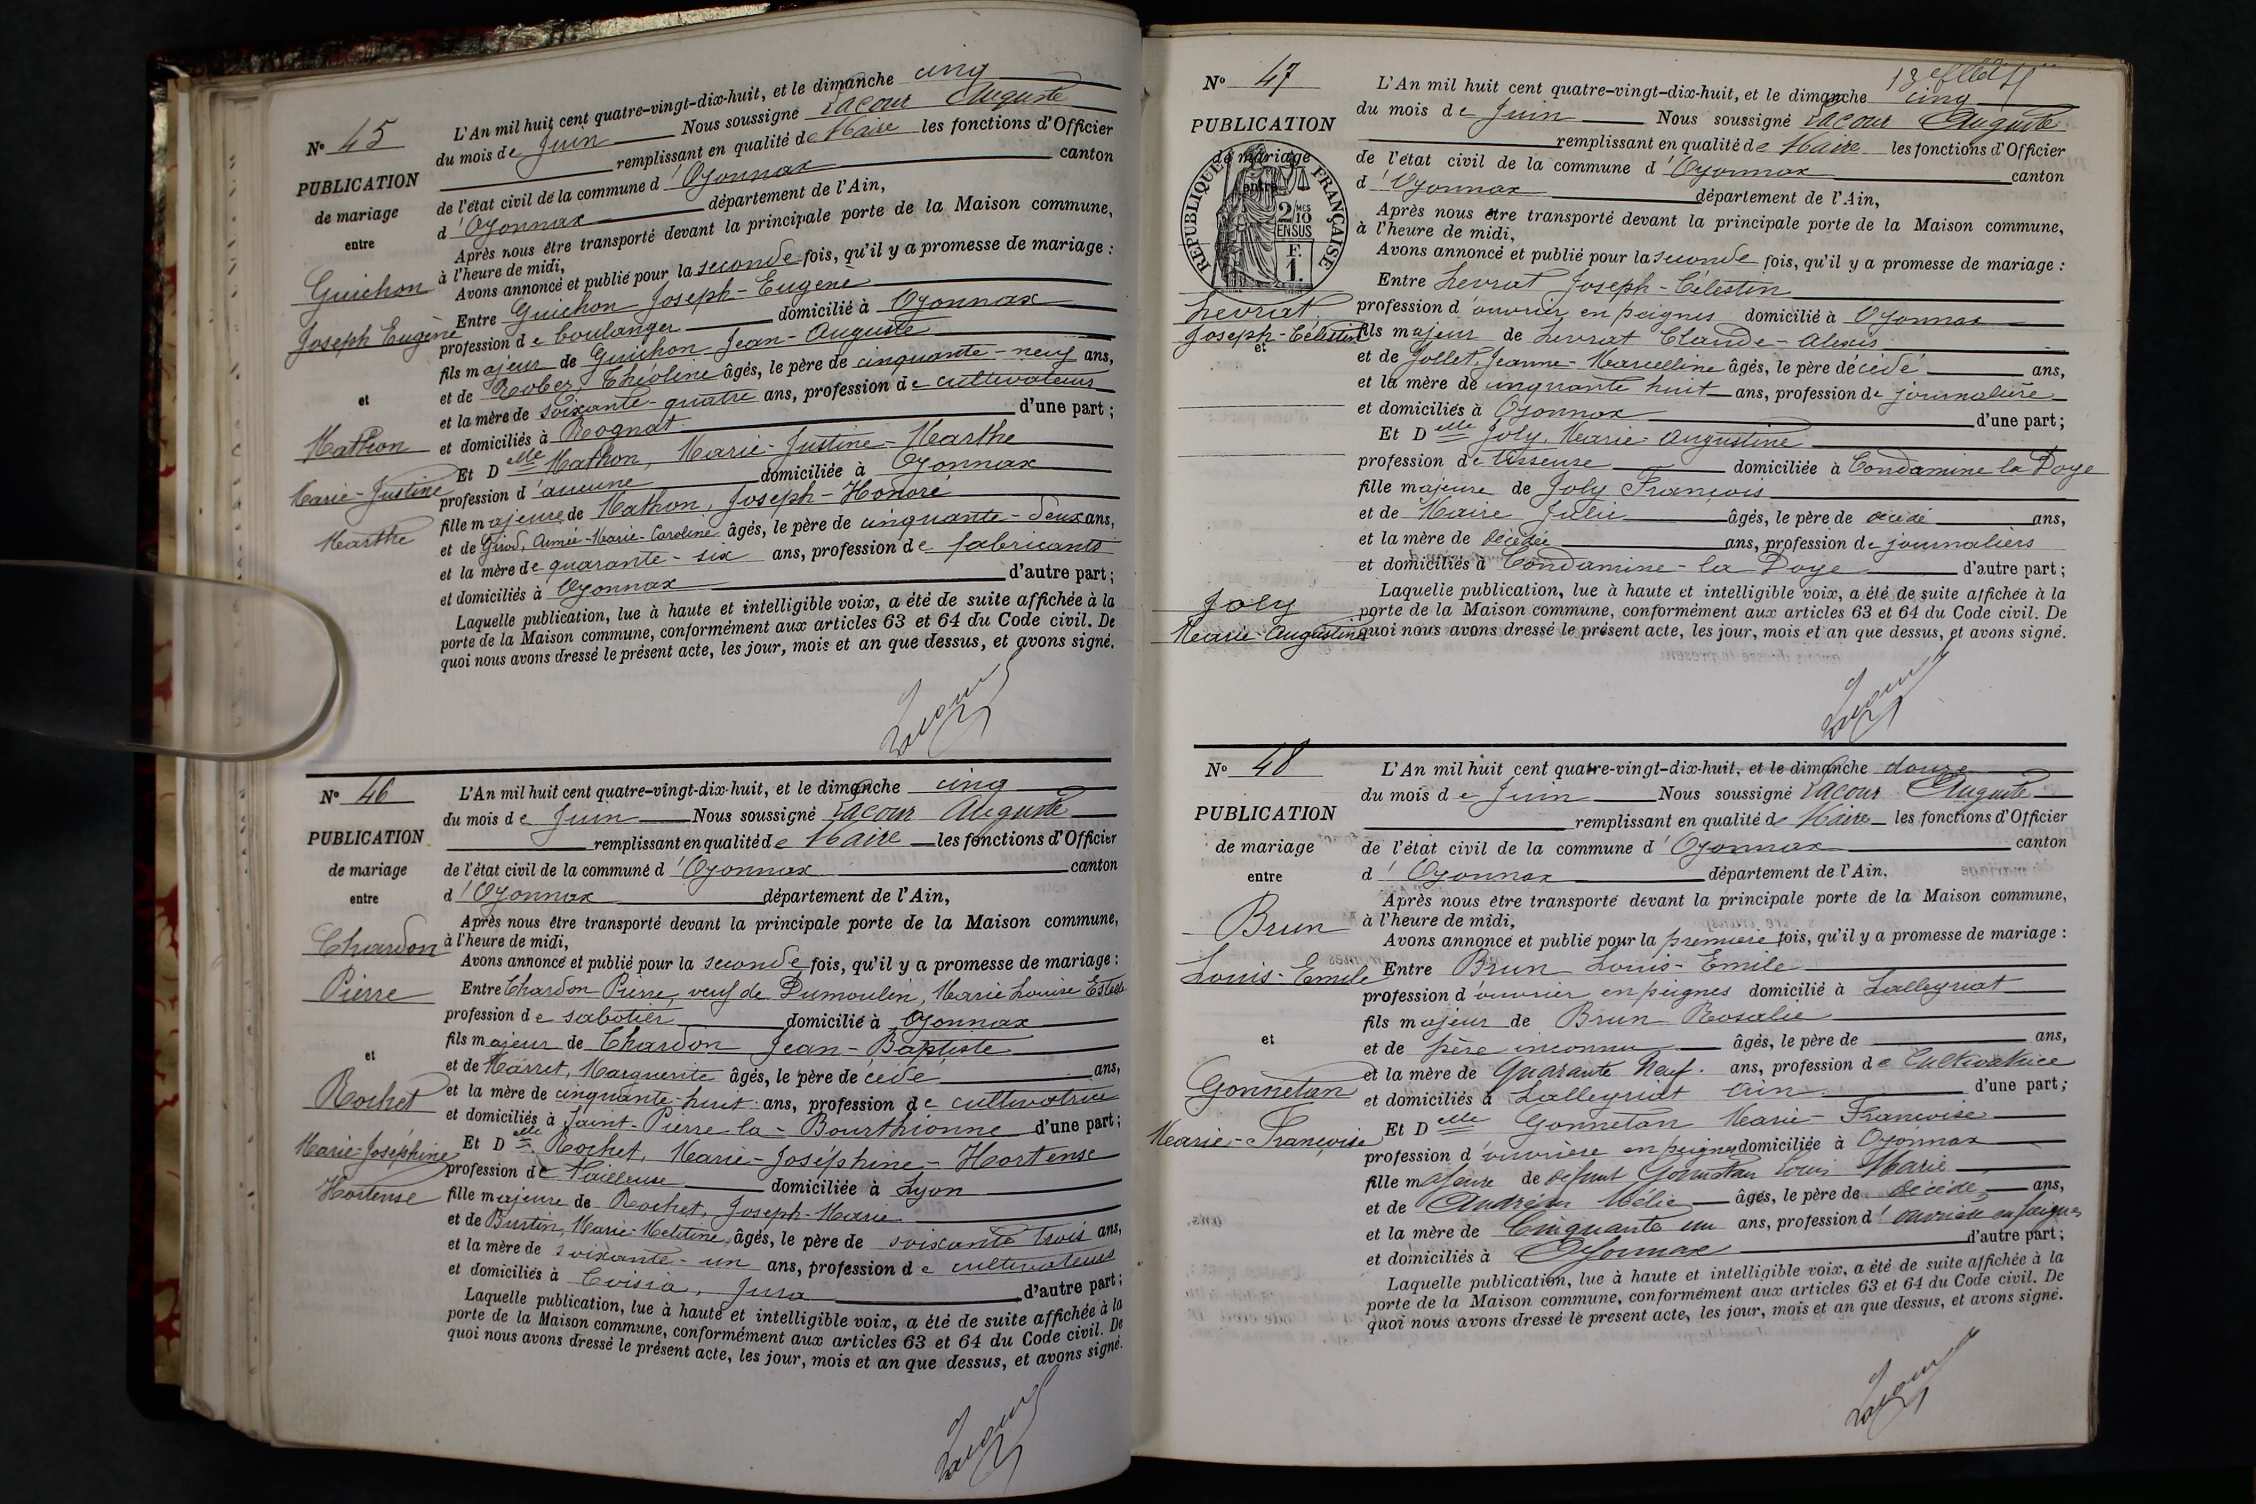 N° 45
PUBLICATION
de mariage
entre
Guichon
Joseph Eugène
et
Mathon
Marie-Justine
Marthe
L'An mil huit cent quatre-vingt-dix-huit, et le dimanche cinq
du mois de Juin Nous soussigné Lacour Auguste
remplissant en qualité de Maire les fonctions d'Officier
de l'état civil de la commune d'Oyonnax canton
d'Oyonnax département de l'Ain,
Après nous être transporté devant la principale porte de la Maison commune,
à l'heure de midi,
Avons annoncé et publié pour la seconde fois, qu'il y a promesse de mariage :
Entre Guichon Joseph-Eugène
profession de boulanger domicilié à Oyonnax
fils majeur de Guichon Jean-Auguste
et de Robez Théoline âgés, le père de cinquante-neuf ans,
et la mère de soixante-quatre ans, profession de cultivateurs
et domiciliés à Rognat d'une part ;
Et Delle Mathon, Marie-Justine-Marthe
profession d'aucune domiciliée à Oyonnax
fille majeure de Mathon, Joseph-Honoré
et de Girod, Aimée-Marie-Caroline âgés, le père de cinquante-deux ans,
et la mère de quarante-six ans, profession de fabricants
et domiciliés à Oyonnax d'autre part ;
Laquelle publication, lue à haute et intelligible voix, a été de suite affichée à la
porte de la Maison commune, conformément aux articles 63 et 64 du Code civil. De
quoi nous avons dressé le présent acte, les jour, mois et an que dessus, et avons signé.
Lacour
N° 46
PUBLICATION
de mariage
entre
Chardon
Pierre
et
Rochet
Marie-Joséphine
Hortense
L'An mil huit cent quatre-vingt-dix-huit, et le dimanche cinq
du mois de Juin Nous soussigné Lacour Auguste
remplissant en qualité de Maire les fonctions d'Officier
de l'état civil de la commune d'Oyonnax canton
d'Oyonnax département de l'Ain,
Après nous être transporté devant la principale porte de la Maison commune,
à l'heure de midi,
Avons annoncé et publié pour la seconde fois, qu'il y a promesse de mariage :
Entre Chardon Pierre, veuf de Dumoulin, Marie Louise
profession de sabotier domicilié à Oyonnax
fils majeur de Chardon Jean-Baptiste
et de Marret, Marguerite âgés, le père de cédé ans,
et la mère de cinquante-huit ans, profession de cultivatrice
et domiciliés à Saint-Pierre-la-Bourthionne d'une part ;
Et Delle Rochet, Marie-Joséphine-Hortense
profession de Tailleuse domiciliée à Lyon
fille majeure de Rochet, Joseph-Marie
et de Burtin, Marie-Melitine, âgés, le père de soixante trois ans,
et la mère de soixante-un ans, profession de cultivateurs
et domiciliés à Coisia, Jura d'autre part ;
Laquelle publication, lue à haute et intelligible voix, a été de suite affichée à la
porte de la Maison commune, conformément aux articles 63 et 64 du Code civil. De
quoi nous avons dressé le présent acte, les jour, mois et an que dessus, et avons signé.
Lacour
N° 47
PUBLICATION
de mariage
entre
RÉPUBLIQUE FRANÇAISE
2/10 MES
EN SUS
F.
1.
Levrat
Joseph-Célestin
et
Joly
Marie-Augustine
L'An mil huit cent quatre-vingt-dix-huit, et le dimanche cinq
du mois de Juin Nous soussigné Lacour Auguste
remplissant en qualité de Maire les fonctions d'Officier
de l'état civil de la commune d'Oyonnax canton
d'Oyonnax département de l'Ain,
Après nous être transporté devant la principale porte de la Maison commune,
à l'heure de midi,
Avons annoncé et publié pour la seconde fois, qu'il y a promesse de mariage :
Entre Levrat Joseph-Célestin
profession d'ouvrier en peignes domicilié à Oyonnax
fils majeur de Levrat Claude-Alexis
et de Jollet, Jeanne-Marcelline âgés, le père décédé ans,
et la mère de cinquante huit ans, profession de journalière
et domiciliés à Oyonnax d'une part ;
Et Delle Joly, Marie-Augustine
profession de tisseuse domiciliée à Condamine la Doye
fille majeure de Joly François
et de Maire Julie âgés, le père de décédé ans,
et la mère de décédée ans, profession de journaliers
et domiciliés à Condamine-la Doye d'autre part ;
Laquelle publication, lue à haute et intelligible voix, a été de suite affichée à la
porte de la Maison commune, conformément aux articles 63 et 64 du Code civil. De
quoi nous avons dressé le présent acte, les jour, mois et an que dessus, et avons signé.
Lacour
N° 48
PUBLICATION
de mariage
entre
Brun
Louis-Emile
et
Gonnetan
Marie-Françoise
L'An mil huit cent quatre-vingt-dix-huit, et le dimanche douze
du mois de Juin Nous soussigné Lacour Auguste
remplissant en qualité de Maire les fonctions d'Officier
de l'état civil de la commune d'Oyonnax canton
d'Oyonnax département de l'Ain,
Après nous être transporté devant la principale porte de la Maison commune,
à l'heure de midi,
Avons annoncé et publié pour la première fois, qu'il y a promesse de mariage :
Entre Brun Louis-Emile
profession d'ouvrier en peignes domicilié à Lalleyriat
fils majeur de Brun Rosalie
et de père inconnu âgés, le père de ans,
et la mère de Quarante Neuf. ans, profession de Cultivatrice
et domiciliés à Lalleyriat Ain d'une part ;
Et Delle Gonnetan Marie-Françoise
profession d'ouvrière en peignes domiciliée à Oyonnax
fille majeure de défunt Gonnetan Louis Marie
et de Andréa Mélie âgés, le père de décédé ans,
et la mère de Cinquante un ans, profession d'ouvrière en peignes
et domiciliés à Oyonnax d'autre part ;
Laquelle publication, lue à haute et intelligible voix, a été de suite affichée à la
porte de la Maison commune, conformément aux articles 63 et 64 du Code civil. De
quoi nous avons dressé le présent acte, les jour, mois et an que dessus, et avons signé.
Lacour